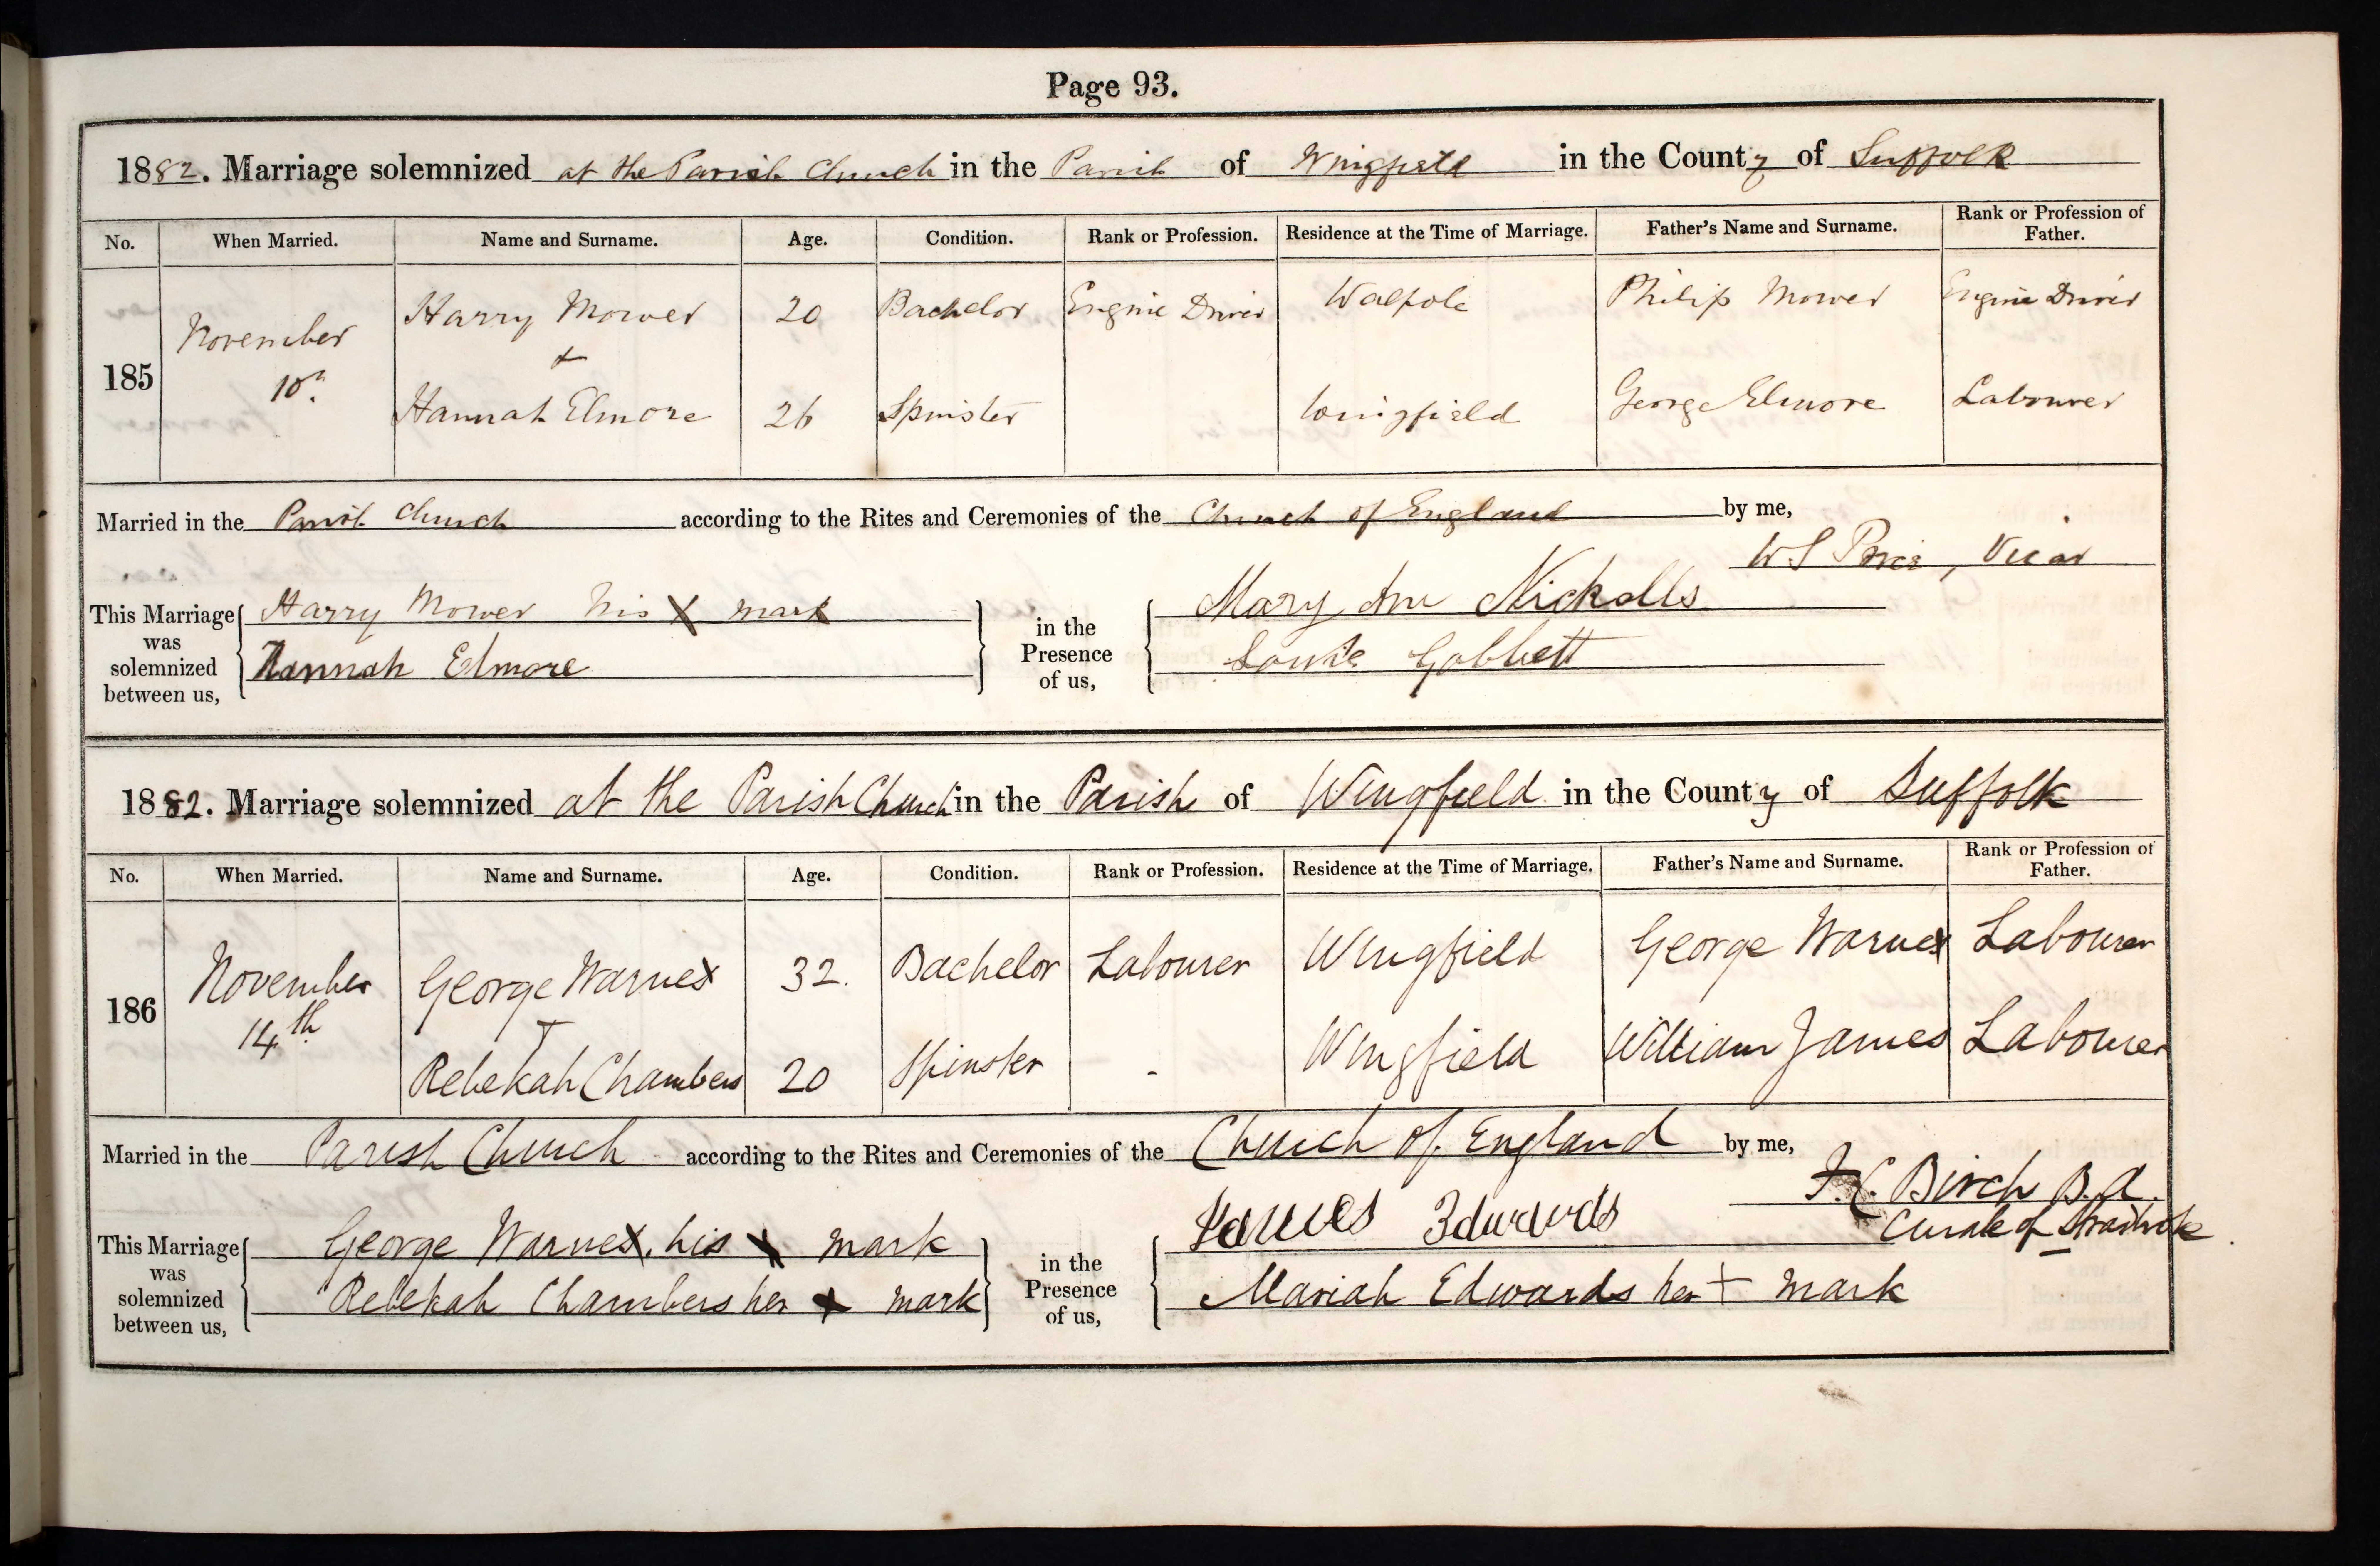 Page 93.
1882. Marriage solemnized at the Parish Church in the Parish of Wingfield in the County of Suffolk
No. When Married. Name and Surname. Age. Condition. Rank or Profession. Residence at the Time of Marriage. Father's Name and Surname. Rank or Profession of Father.
185 November 10th Harry Mower 20 Bachelor Engine Driver Walpole Philip Mower Engine Driver
+
Hannah Elmore 26 Spinster Wingfield George Elmore Labourer
Married in the Parish Church according to the Rites and Ceremonies of the Church of England by me,
W S Price, Vicar
This Marriage was solemnized between us, Harry Mower his X mark
Hannah Elmore
in the Presence of us, Mary Ann Nickolls
Louise Gobbett
1882. Marriage solemnized at the Parish Church in the Parish of Wingfield in the County of Suffolk
No. When Married. Name and Surname. Age. Condition. Rank or Profession. Residence at the Time of Marriage. Father's Name and Surname. Rank or Profession of Father.
186 November 14th George Warnes 32. Bachelor Labourer Wingfield George Warnes Labourer
+
Rebekah Chambers 20 Spinster - Wingfield William James Labourer
Married in the Parish Church according to the Rites and Ceremonies of the Church of England by me,
F.C. Birch B.A.
Curate of Stradbroke
This Marriage was solemnized between us, George Warnes, his X mark
Rebekah Chambers her X mark
in the Presence of us, James Edwards
Mariah Edwards her + mark